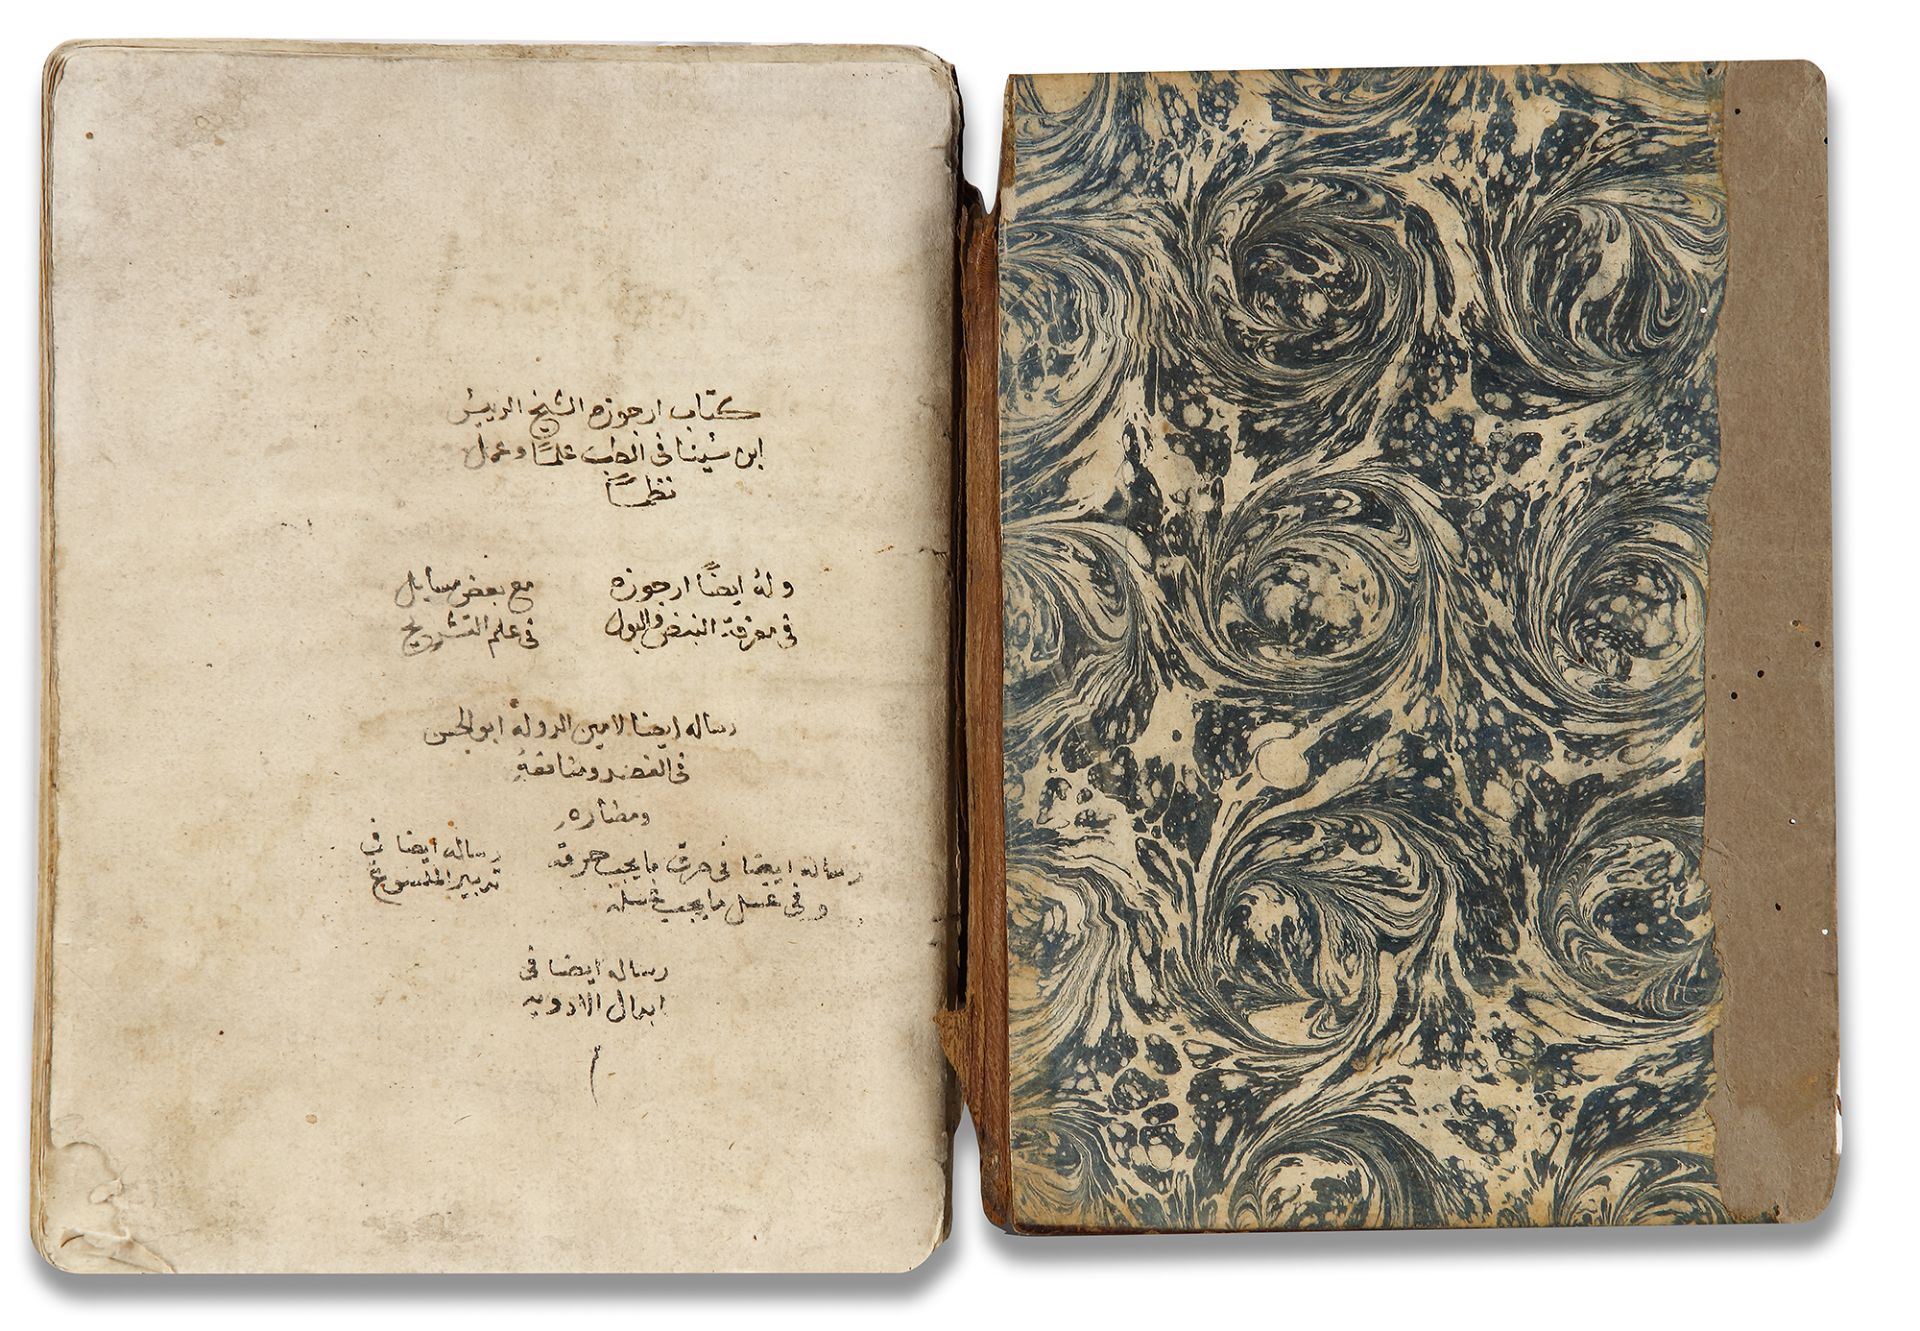 كتاب ارجوزه الشيخ الرييس
ابن سينا فى الطب علمًا وعمل
نظمًا
وله ايضًا ارجوزه
فى معرفة النبض والبول
مع بعض مسايل
فى علم التشريح
رساله ايضا لامين الدوله ابو الحسن
فى الفصد ومنافعه
ومضاره
رساله ايضا فى حرق ما يجب حرقه
وفى غسل ما يجب غسله
رساله ايضا فى
تدبير الملسوع
رساله ايضا فى
ابدال الادويه